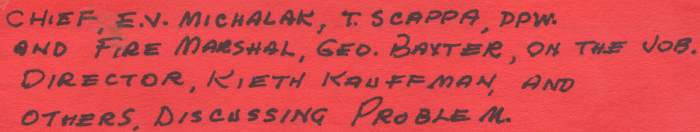 CHIEF, E.V. MICHALAK, T. SCAPPA, DPW.
AND FIRE MARSHAL, GEO. BAXTER, ON THE JOB.
DIRECTOR, KIETH KAUFFMAN, AND
OTHERS, DISCUSSING PROBLEM.